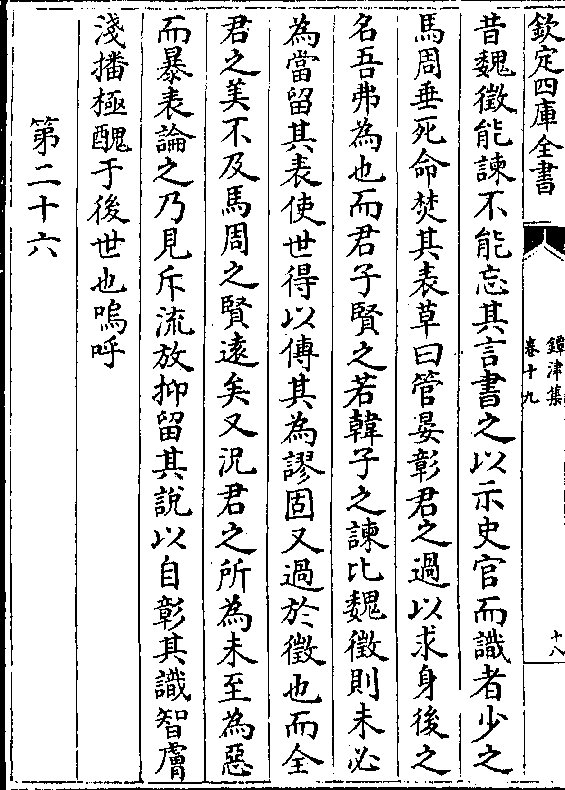 欽定四庫全書
鐔津集
卷十九
十八
昔魏徵能諫不能忘其言書之以示史官而識者少之
馬周垂死命焚其表草曰管晏彰君之過以求身後之
名吾弗為也而君子賢之若韓子之諫比魏徵則未必
為當留其表使世得以傳其為謬固又過於徵也而全
君之美不及馬周之賢遠矣又況君之所為未至為惡
而暴表論之乃見斥流放抑留其說以自彰其識智膚
淺播極醜于後世也嗚呼
第二十六